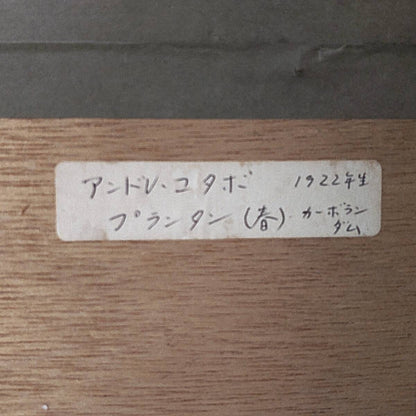 アンドレ・コタボ 1922年生
プランタン(春). カーボラン
ダム